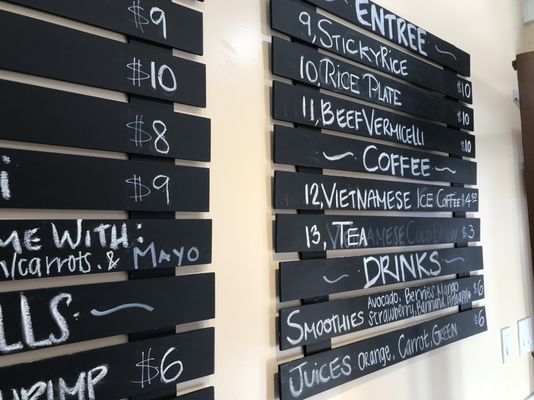 $9
$10
$8
$9
me With:
/carrots. & Mayo
$6
ENTREE
9, StickyRice $10
10, Rice Plate $10
11, Beef Vermicelli $10
Coffee
12, Vietnamese Ice Coffee $4.50
13, Tea $3
Drinks
Smoothies Avocado, Berries Mango $6
Strawberry, Banana,
Juices Orange, Carrot, Green $6